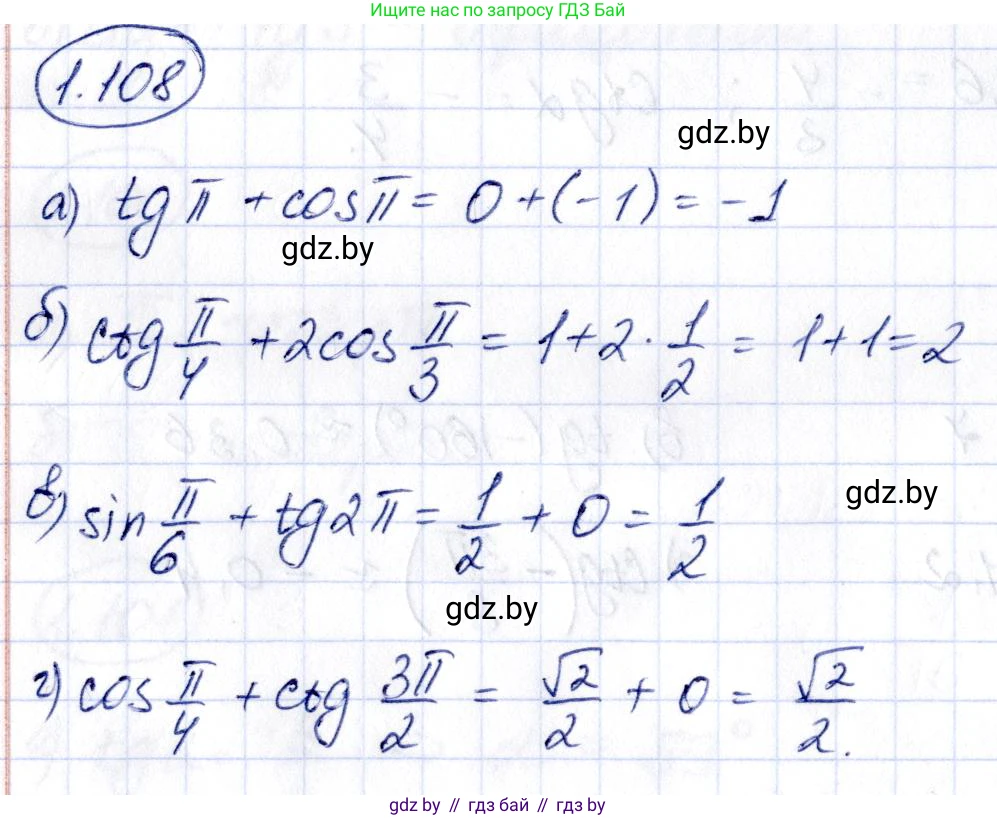 Ищите нас по запросу ГДЗ Бай
1.108
gdz.by
а) tg π + cos π = 0 + (-1) = -1
gdz.by
б) ctg π/4 + 2cos π/3 = 1 + 2 · 1/2 = 1 + 1 = 2
в) sin π/6 + tg 2π = 1/2 + 0 = 1/2
gdz.by
gdz.by
г) cos π/4 + ctg 3π/2 = √2/2 + 0 = √2/2.
gdz by // гдз бай // гдз by